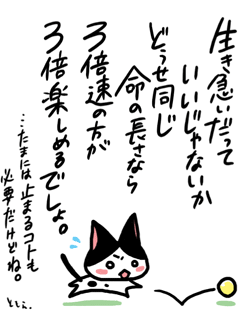 生き急いだって
いいじゃないか
どうせ同じ
命の長さなら
3倍速の方が
3倍楽しめるでしょ。
…たまには止まるコトも
必要だけどね。